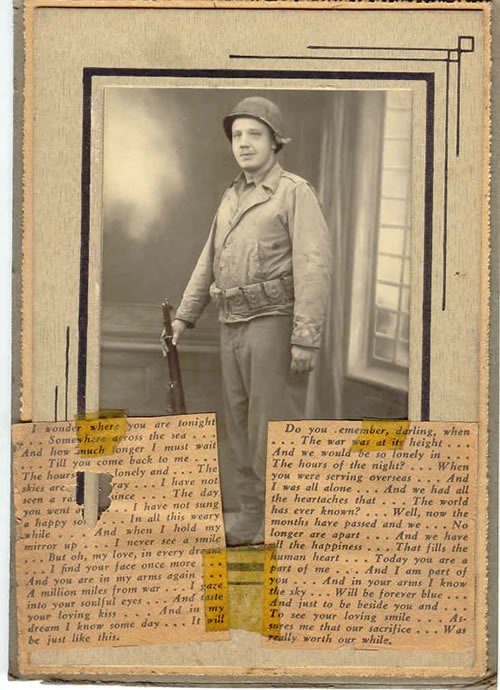 I wonder where you are tonight
. . . Somewhere across the sea . . .
And how much longer I must wait
. . . Till you come back to me . . .
The hours lonely and . . . The
skies are ray . . . I have not
seen a ra ince . . . The day
you went a I have not sung
a happy so In all this weary
while . . . And when I hold my
mirror up . . . I never see a smile
. . . But oh, my love, in every dream
. . . I find your face once more . . .
And you are in my arms again . . .
A million miles from war . . . I gaze
into your soulful eyes . . . And taste
your loving kiss . . . And in my
dream I know some day . . . It will
be just like this.
Do you emember, darling, when
. . . The war was at its height . . .
And we would be so lonely in . . .
The hours of the night? . . . When
you were serving overseas . . . And
I was all alone . . . And we had all
the heartaches that . . . The world
has ever known? . . . Well, now the
months have passed and we . . . No
longer are apart . . . And we have
all the happiness . . . That fills the
human heart . . . Today you are a
part of me . . . And I am part of
you . . . And in your arms I know
the sky . . . Will be forever blue . . .
And just to be beside you and . . .
To see your loving smile . . . As-
sures me that our sacrifice . . . Was
really worth our while.